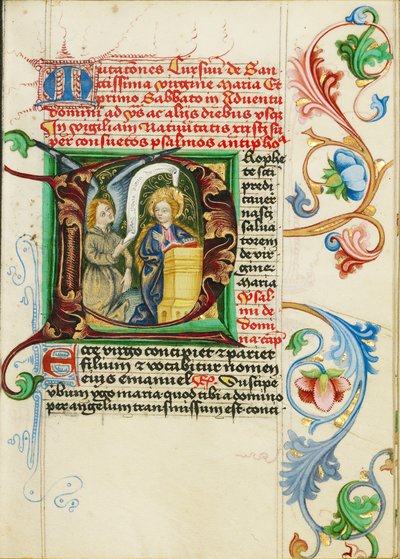 Mutationes Cursuū de San
ctissima virgine Maria Et
primo Sabbato in Aduentu
domini ad vp̄s ac aliis diebus vsqꝫ
In vigiliam Natiuitatis xp̄isti
per consuetos psalmos antipho
Prophe
te sc̄i
predi
cauer̄
nasci
salua
torem
de vir
gine
maria
psal
mi de
domi
na cap
Ecce virgo concipiet ⁊ pariet
filium ⁊ vocabitur nomen
eius emanuel Suscipe
v̄bum v̓go maria quod tibi a domino
per angelum transmissum est